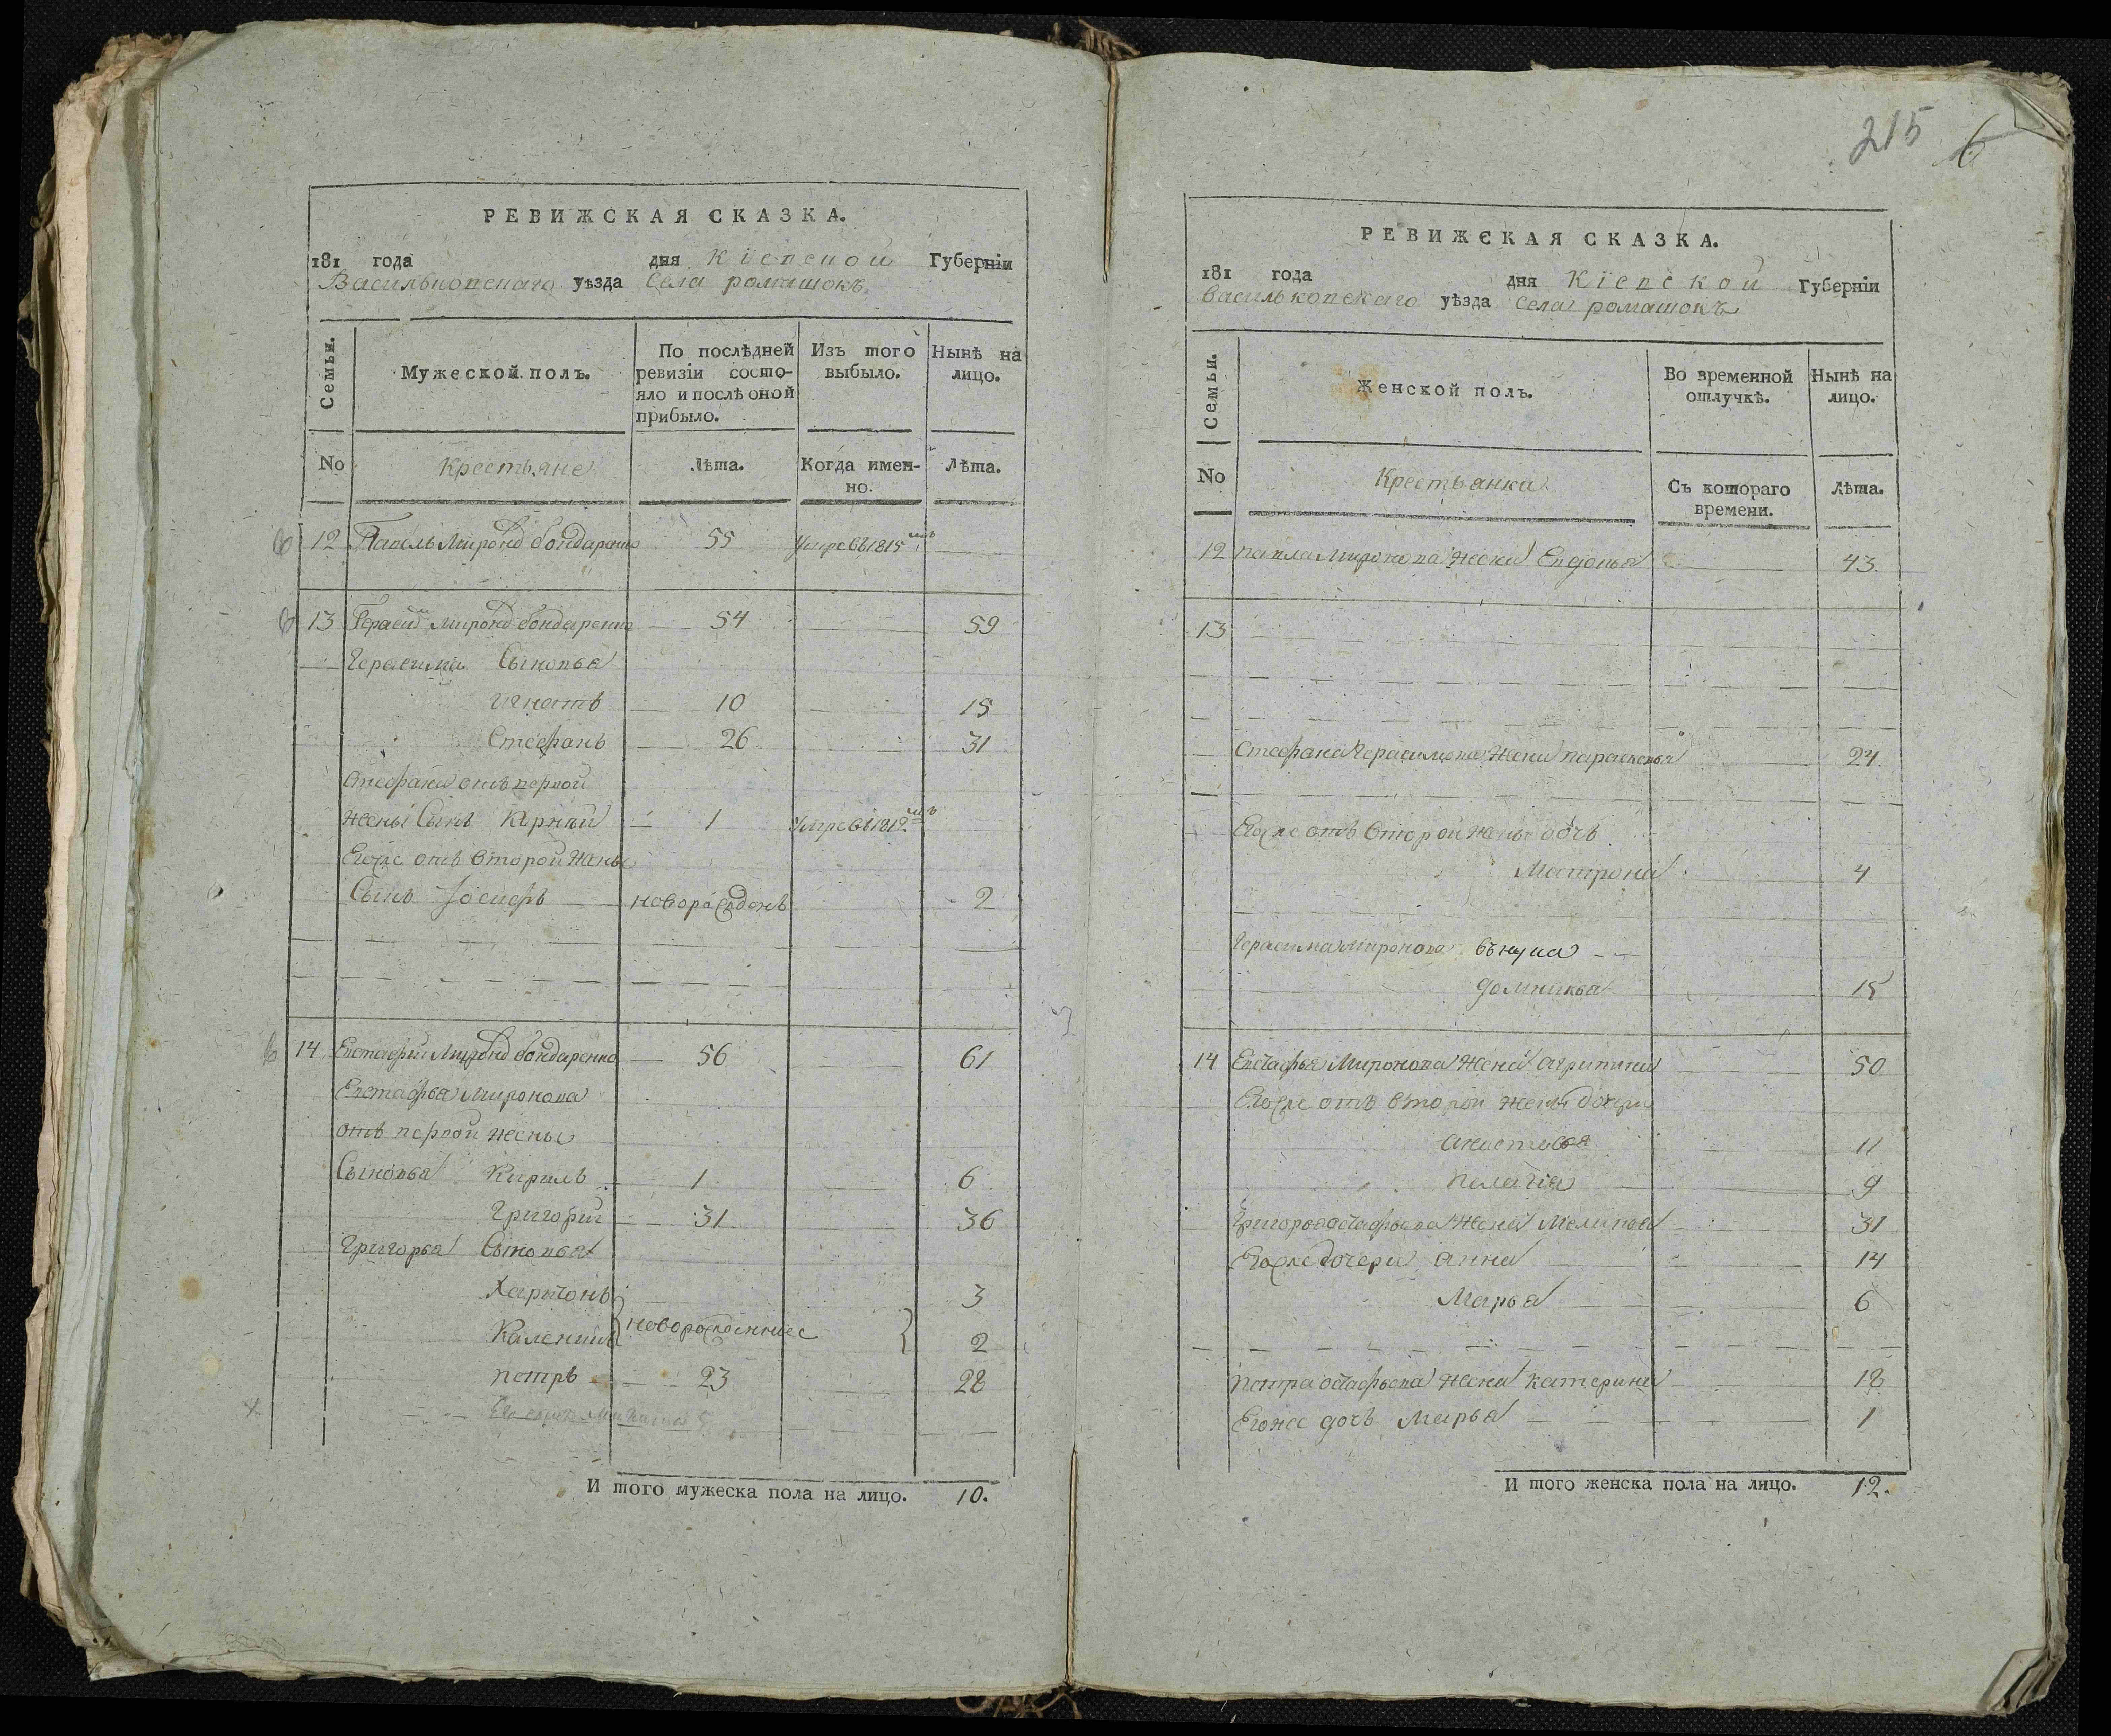 215 6
РЕВИЖСКАЯ СКАЗКА.
181 года дня Кіевской Губерніи
Васильковскаго уѣзда Села ромашокъ
Семьи.
Мужеской полъ.
По послѣдней ревизіи состо-
яло и послѣ оной
прибыло.
Изъ того
выбыло.
Нынѣ на
лицо.
No Крестьяне Лѣта. Когда имен-
но. Лѣта.
12 Павелъ Миронов бондаренко 55 Умре въ 1815мъ
13 Герасим Миронов бондаренко 54 59
Герасима Сыновья
Игнатъ 10 15
Стефанъ 26 31
Стефана отъ первой
жены Сынъ Корнии 1 Умре въ 1812мъ
Егоже отъ второй жены
Сынъ Іосифъ новорожденъ 2
14 Евстафии Миронов бондаренко 56 61
Евстафья Миронова
отъ первой жены
Сыновья Кирилъ 1 6
Григорий 31 36
Григорья Сыновья
Харитонъ 3
Каленикъ новорожденние 2
петръ 23 28
И того мужеска пола на лицо. 10.
РЕВИЖСКАЯ СКАЗКА.
181 года дня Кіевской Губерніи
Васильковскаго уѣзда Села ромашокъ
Семьи.
Женской полъ.
Во временной
отлучкѣ.
Нынѣ на
лицо.
No Крестьянки Съ котораго
времени. Лѣта.
12 павла Миронова жена Евдокья 43.
13
Стефана Герасимова жена параскевья 24.
Егоже отъ второй жены дочь
Матрона 4
Герасима Миронова внука
домникия 15
14 Евстафья Миронова жена агрипина 50
Егоже отъ второй жены дочери
анастасья 11
пелагія 9
Григорья остафьева жена Меланья 31
Егоже дочери анна 14
Марья 6
петра остафьева жена катерина 18
Егоже дочь Марья 1
И того женска пола на лицо. 12.